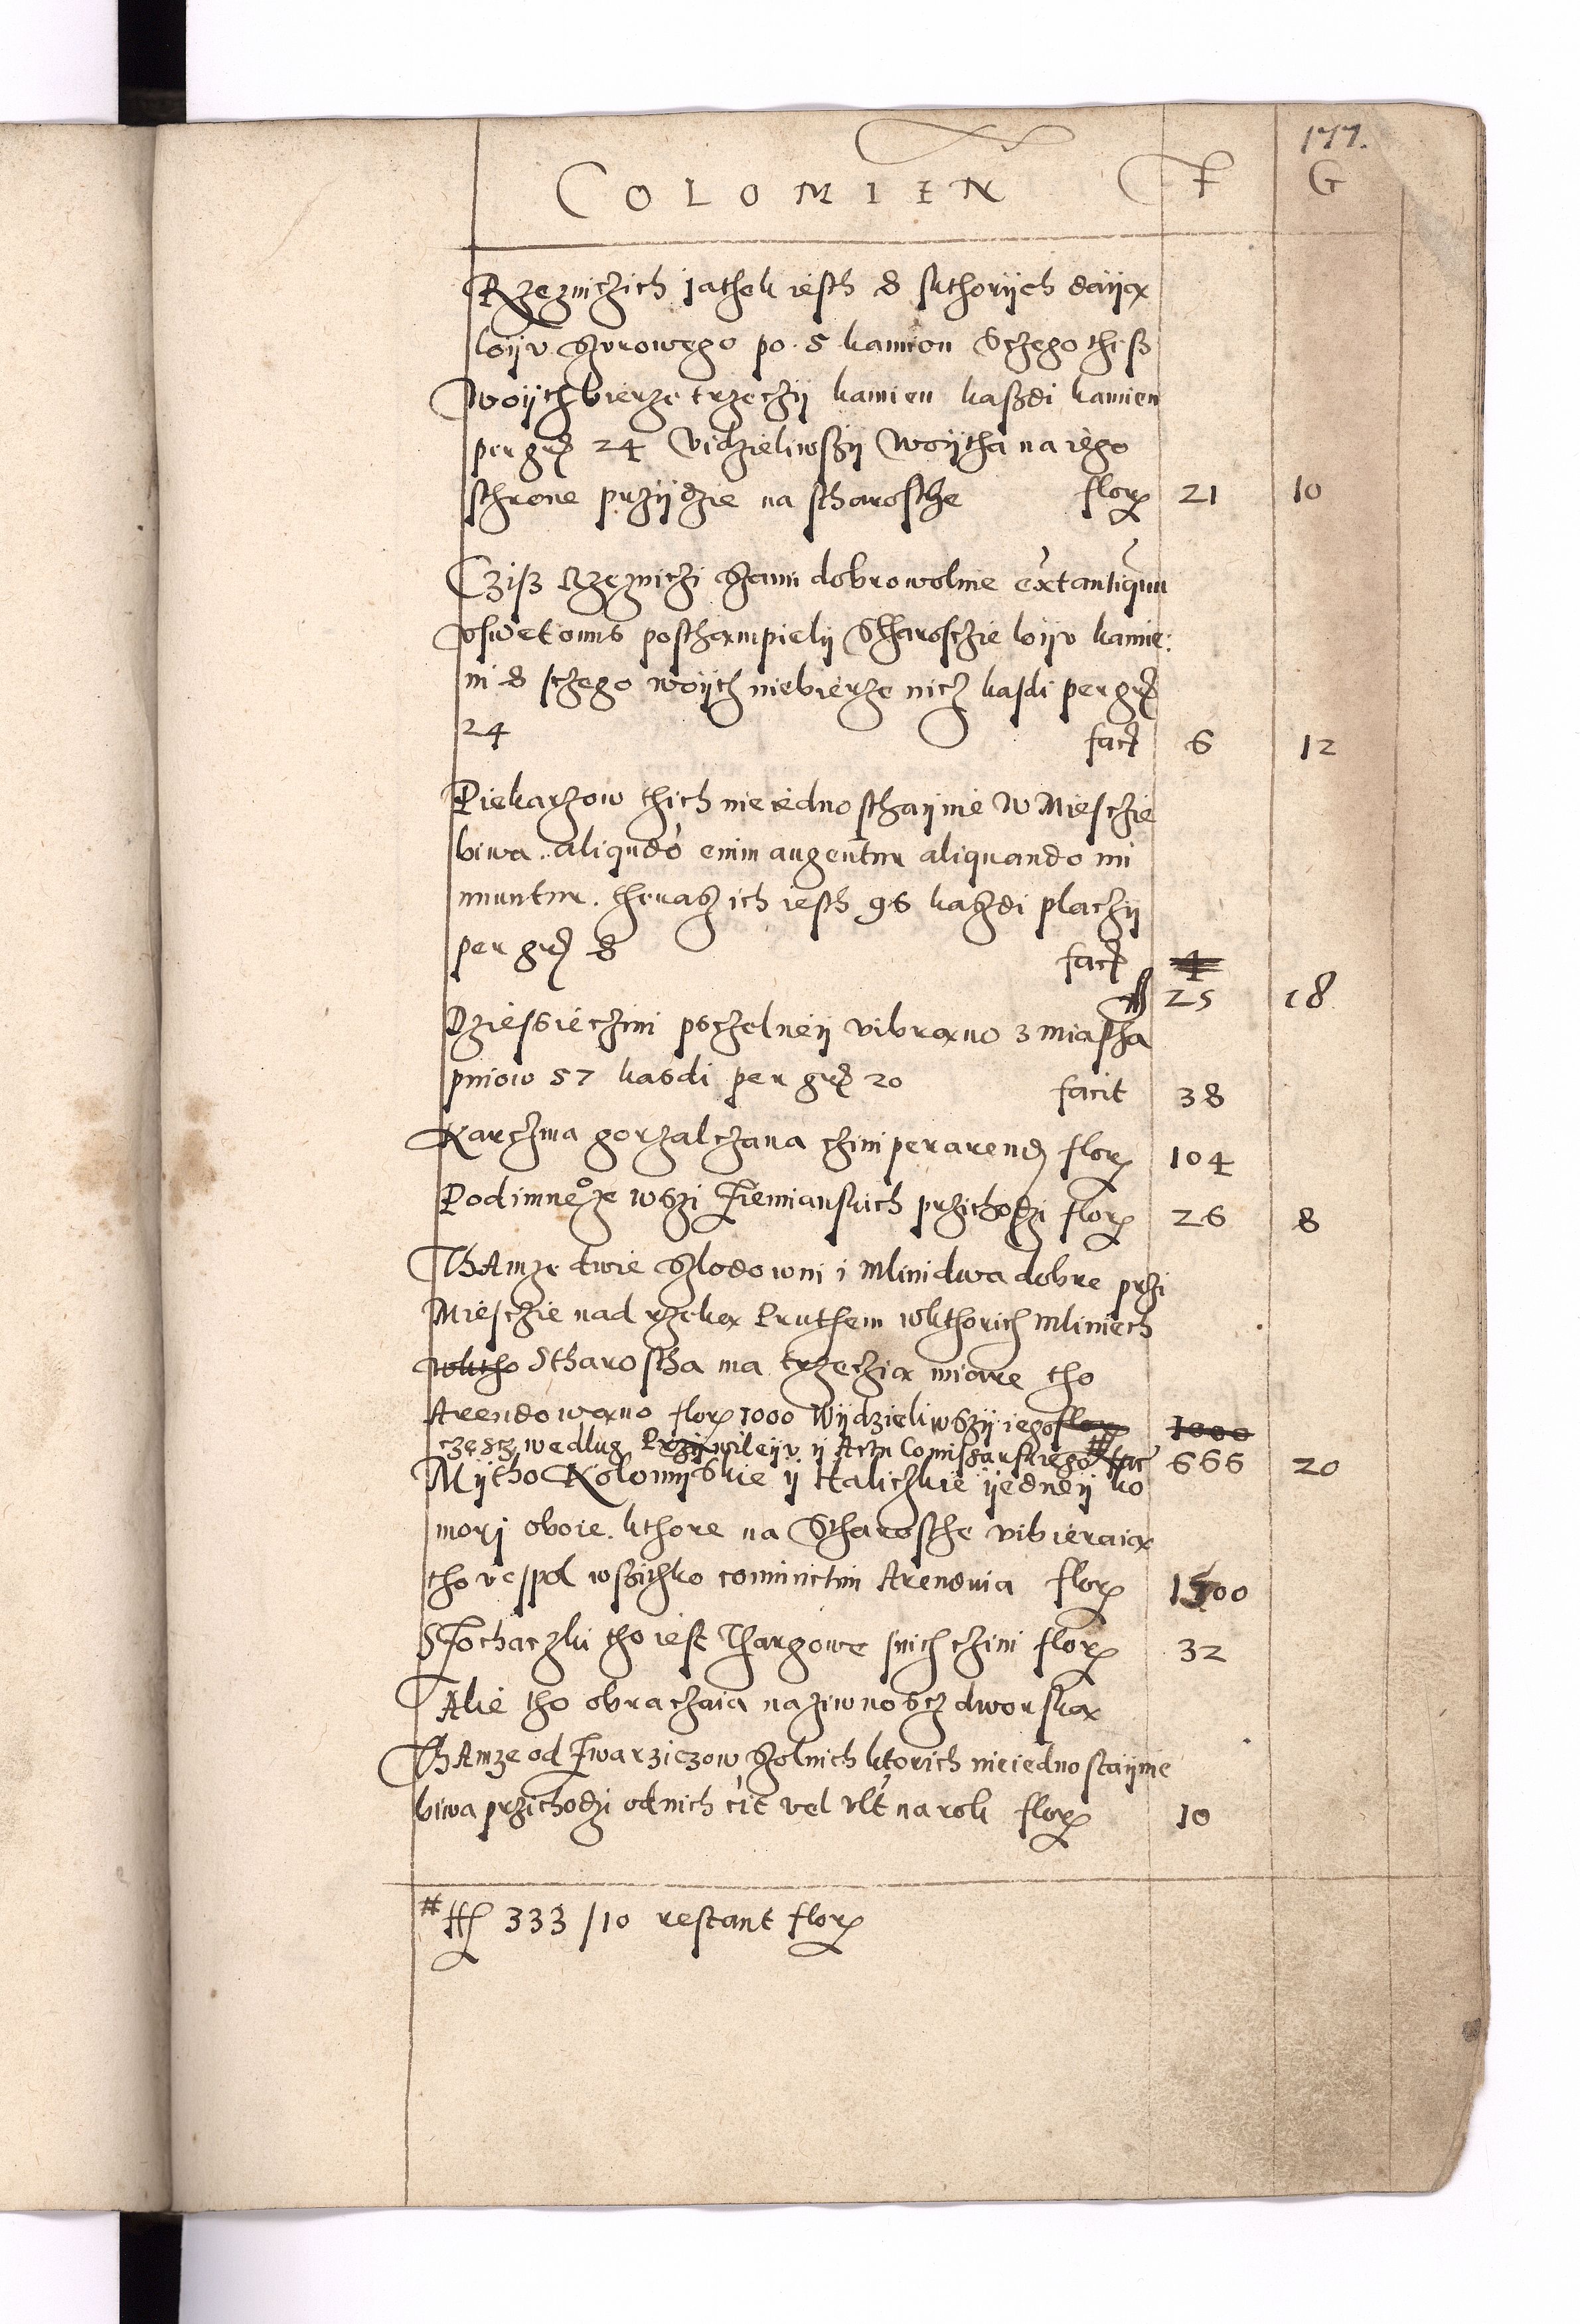 177.
COLOMIEN F G
Rzeznichich jathek iesth 8 skthorijch daija
loijv Surowego po 5 kamion Sczego thesz
Woijth bierze trzeczij kamien kaszdi kamien
per grs 24 Vidzieliwszij Woijtha na iego
schrone prziijdzie na stharosthe flor 21 10
Czisz Rzeznichi Sami dobrowolnie ex antiqua
postharnpielij Stharosczie loijv kamie:
ni 8 sczego woijth niebierze nicz kasdi per grs
24 fact 6 12
Piekarzow thich nie iednosthaijnie W Miesczie
biwa. aliqndo enim augentur aliquando mi
nuuntur. theraz ich iesth 96 kazdi placzij
per grs 8 fact
25 18
Dziesieczini psczelneij vibrano z miastha
pniow 57 kasdi per grs 20 facit 38
Karczma gorzalczana czini per arend flor 104
Podimne ze wszi Ziemianskich przichodzi flor 26 8
Thamze dwie Slodowni i Mlini dwa dobre przi
Miesczie nad rzeka Pruthem wkthorich Mliniech
wktho Stharostha ma trzeczia miare tho
Arendowano flor 1000 Wijdzieliwszij iego flor 1000
częscz wedlug Prziwileijv ij Actu Comissarskiego # fac 666 20
Mijtho Kolomijskie ij Haliczkie ijedneij ko
mori oboie. kthore na Stharosthe vibieraia
tho vespol wszithko coniunctim Arenduia flor 1500
Stochaczki tho iest Thargowe snich czini flor 32
Alie tho obraczaia naziwnoscz dworska
Thamze od Twarziczow Solnich ktorich nieiednostaijnie
biwa przichodzi od nich cit vel vlt na rok flor 10
# 333 / 10 restant flor